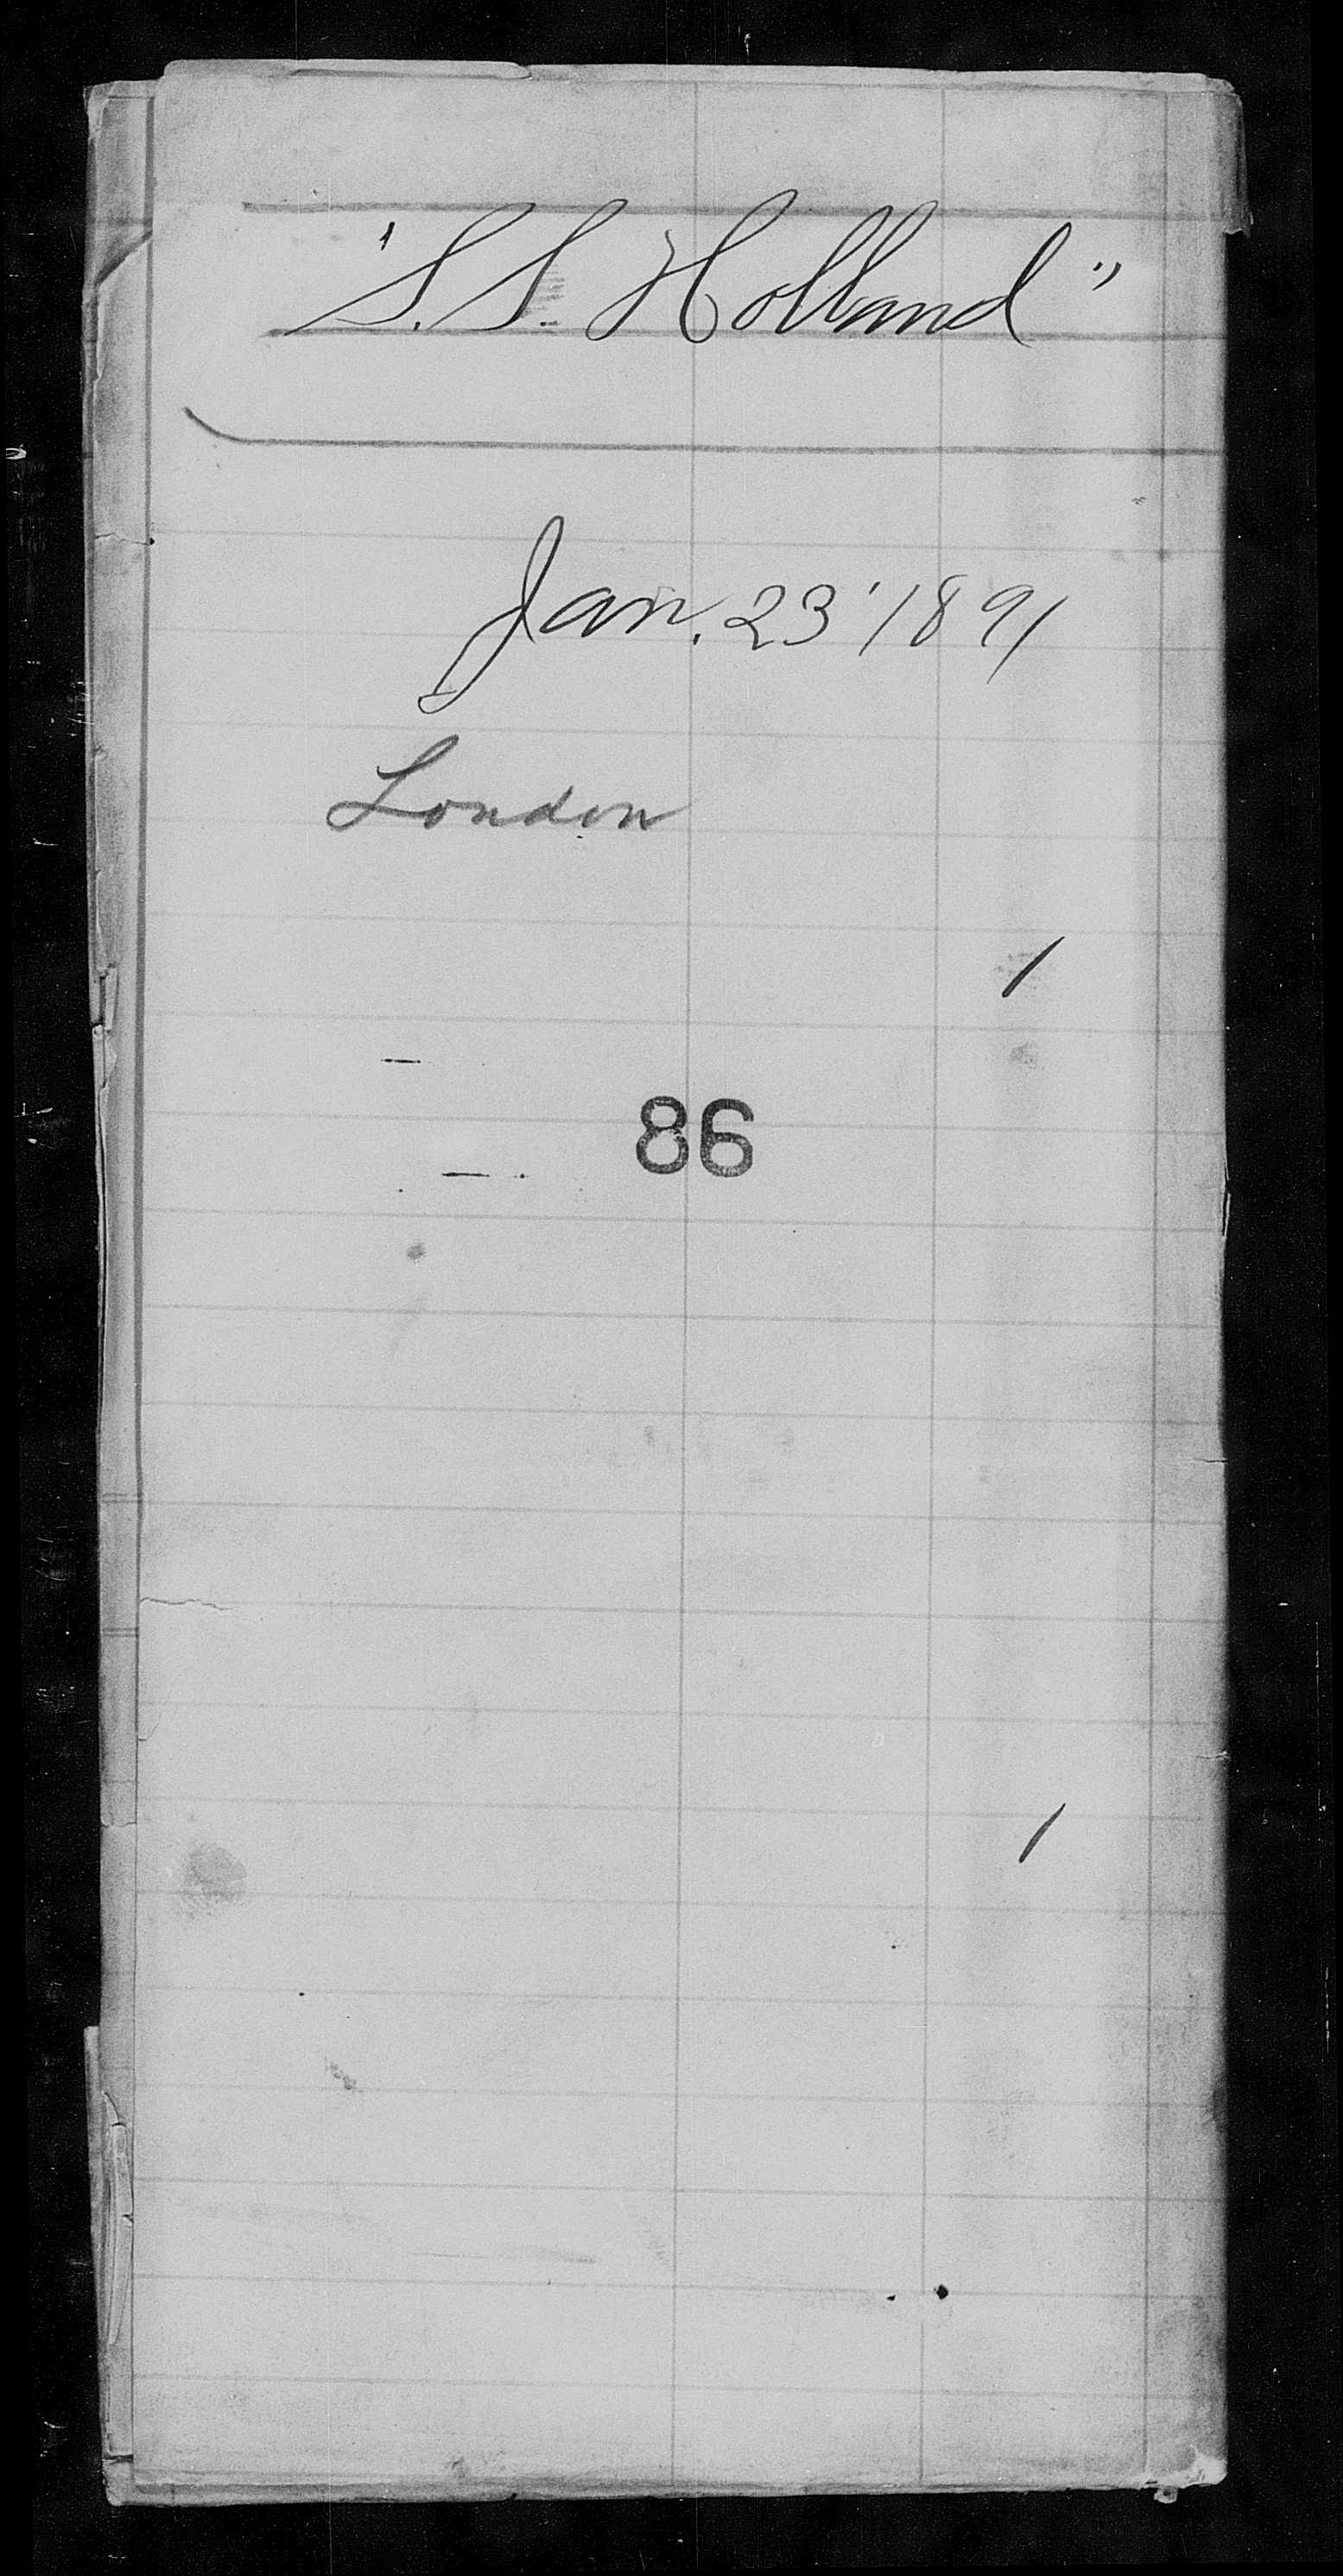 "S.S. Holland"
Jan. 23' 1891
London
1
86
1